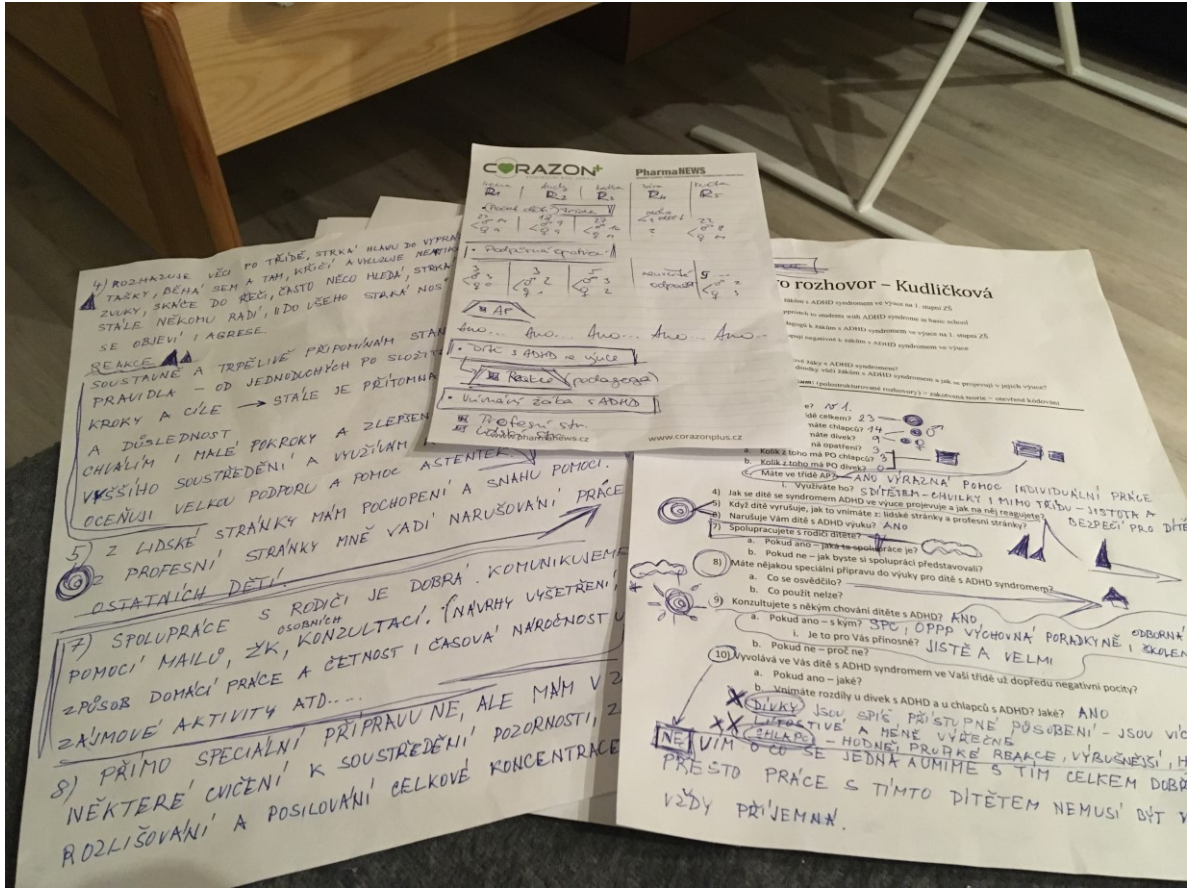 4) ROZHAZUJE VĚCI PO TŘÍDĚ, STRKÁ HLAVU DO
TAŠKY, BĚHÁ SEM A TAM, KŘIČÍ A VYLUZUJE
ZVUKY, SKÁČE DO ŘEČI, ČASTO NĚCO HLEDÁ, STRKÁ
STÁLE NĚKOMU RADÍ, DO VŠEHO STRKÁ NOS
SE OBJEVÍ I AGRESE.
REAKCE
SOUSTAVNĚ A TRPĚLIVĚ PŘIPOMÍNÁM
PRAVIDLA – OD JEDNODUCHÝCH PO
KROKY A CÍLE → STÁLE JE PŘÍTOMNA
A DŮSLEDNOST
CHVÁLÍM I MALÉ POKROKY A
VYŠŠÍHO SOUSTŘEDĚNÍ A VYUŽÍVÁM
OCEŇUJI VELKOU PODPORU A POMOC ASTENTEK.
5) Z LIDSKÉ STRÁNKY MÁM POCHOPENÍ A SNAHU POMOCI.
Z PROFESNÍ STRÁNKY MNĚ VADÍ NARUŠOVÁNÍ PRÁCE
OSTATNÍCH DĚTÍ.
7) SPOLUPRÁCE S RODIČI JE DOBRÁ. KOMUNIKUJEME
POMOCÍ MAILŮ, ŽK, OSOBNÍCH KONZULTACÍ. (NÁVRHY VYŠETŘENÍ,
ZPŮSOB DOMÁCÍ PRÁCE A ČETNOST I ČASOVÁ NÁROČNOST
ZÁJMOVÉ AKTIVITY ATD....
8) PŘÍMO SPECIÁLNÍ PŘÍPRAVU NE, ALE MÁM V
NĚKTERÉ CVIČENÍ K SOUSTŘEDĚNÍ POZORNOSTI,
ROZLIŠOVÁNÍ A POSILOVÁNÍ CELKOVÉ KONCENTRACE
CORAZON+ PharmaNEWS
R1 R2 R3 R4 R5
• Podpůrná opatření
AP
Ano... Ano... Ano... Ano... Ano...
• Dítě s ADHD ve výuce
Reakce (pedagoga)
• Vnímání žáka s ADHD
Profesní str.
Lidská str.
www.pharmanews.cz www.corazonplus.cz
ro rozhovor – Kudličková
žákům s ADHD syndromem ve výuce na 1. stupni ZŠ
approach to students with ADHD syndrome in basic school
pedagogů k žákům s ADHD syndromem ve výuce na 1. stupni ZŠ
negativně k žákům s ADHD syndromem ve výuce
žáky s ADHD syndromem?
vůči žákům s ADHD syndromem a jak se projevují v jejich výuce?
(polostrukturované rozhovory) – zakotvená teorie – otevřené kódování
celkem? 23
máte chlapců? 14
máte dívek? 9
opatření? 3
a. Kolik z toho má PO chlapců? 3
b. Kolik z toho má PO dívek? 0
c. Máte ve třídě AP? – ANO VÝRAZNÁ POMOC INDIVIDUÁLNÍ PRÁCE
i. Využíváte ho? S DÍTĚTEM – CHVILKY I MIMO TŘÍDU – JISTOTA A
BEZPEČÍ PRO DÍTĚ
4) Jak se dítě se syndromem ADHD ve výuce projevuje a jak na něj reagujete?
5) Když dítě vyrušuje, jak to vnímáte z: lidské stránky a profesní stránky?
Narušuje Vám dítě s ADHD výuku? ANO
7) Spolupracujete s rodiči dítěte?
a. Pokud ano – jaká ta spolupráce je?
b. Pokud ne – jak byste si spolupráci představovali?
8) Máte nějakou speciální přípravu do výuky pro dítě s ADHD syndromem?
a. Co se osvědčilo?
b. Co použít nelze?
9) Konzultujete s někým chování dítěte s ADHD? ANO
a. Pokud ano – s kým? SPC, OPPP VÝCHOVNÁ PORADKYNĚ I ODBORNÁ
i. Je to pro Vás přínosné? JISTĚ A VELMI
b. Pokud ne – proč ne?
10) Vyvolává ve Vás dítě s ADHD syndromem ve Vaší třídě už dopředu negativní pocity?
a. Pokud ano – jaké?
b. Vnímáte rozdíly u dívek s ADHD a u chlapců s ADHD? Jaké? ANO
DÍVKY JSOU SPÍŠ PŘÍSTUPNÉ PŮSOBENÍ – JSOU VÍC
LÍTOSTIVÉ A MÉNĚ VÝŘEČNÉ
CHLAPCI – HODNĚ PRUDKÉ REAKCE, VÝBUŠNĚJŠÍ,
NE VÍM O CO SE JEDNÁ A UMÍME S TÍM CELKEM
PŘESTO PRÁCE S TÍMTO DÍTĚTEM NEMUSÍ BÝT
VŽDY PŘÍJEMNÁ.